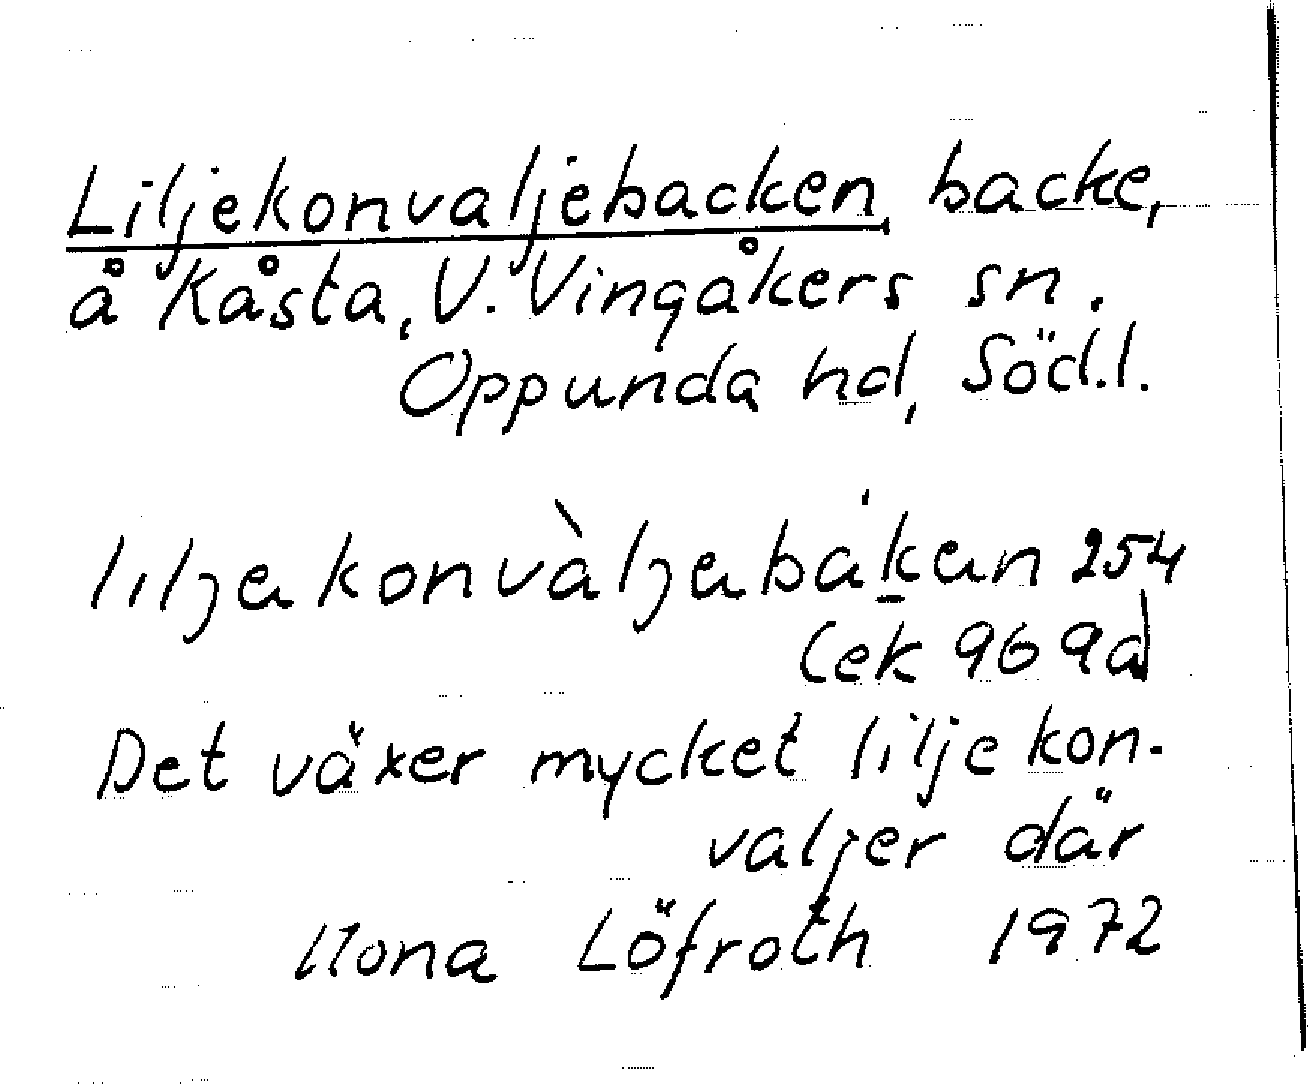 Liljekonvaljebacken, backe,
å Kåsta, V. Vingåkers sn.
Oppunda hd, Söd.l.
liljekonvàljebakan 254
(ek 969a)
Det växer mycket liljekon-
valjer där
Ilona Löfroth 1972